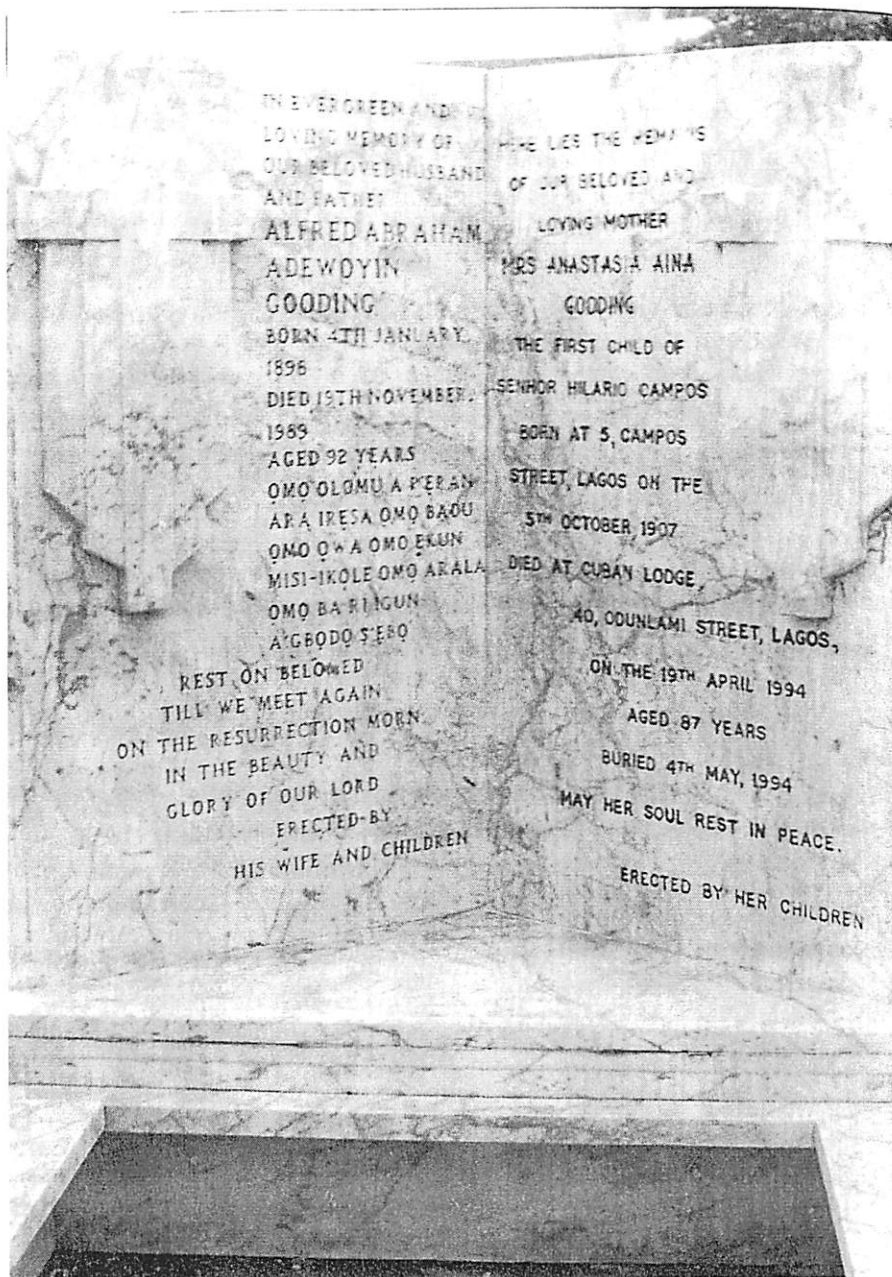 IN EVERGREEN AND
LOVING MEMORY OF
OUR BELOVED HUSBAND
AND FATHER
ALFRED ABRAHAM
ADEWOYIN
GOODING
BORN 4TH JANUARY,
1898
DIED 19TH NOVEMBER,
1989
AGED 92 YEARS
ỌMỌ OLOMU A P'ERAN
ARA IRẸSA ỌMỌ
ỌMỌ ỌWA ỌMỌ EKUN
MISI-IKOLE ỌMỌ AKALA
ỌMỌ BA RI IGUN
A'GBỌDỌ S'EBỌ
REST ON BELOVED
TILL WE MEET AGAIN
ON THE RESURRECTION MORN
IN THE BEAUTY AND
GLORY OF OUR LORD
ERECTED BY
HIS WIFE AND CHILDREN
HERE LIES THE REMAINS
OF OUR BELOVED AND
LOVING MOTHER
MRS ANASTASIA AINA
GOODING
THE FIRST CHILD OF
SENHOR HILARIO CAMPOS
BORN AT 5, CAMPOS
STREET, LAGOS ON THE
5TH OCTOBER, 1907
DIED AT CUBAN LODGE,
40, ODUNLAMI STREET, LAGOS,
ON THE 19TH APRIL 1994
AGED 87 YEARS
BURIED 4TH MAY, 1994
MAY HER SOUL REST IN PEACE.
ERECTED BY HER CHILDREN